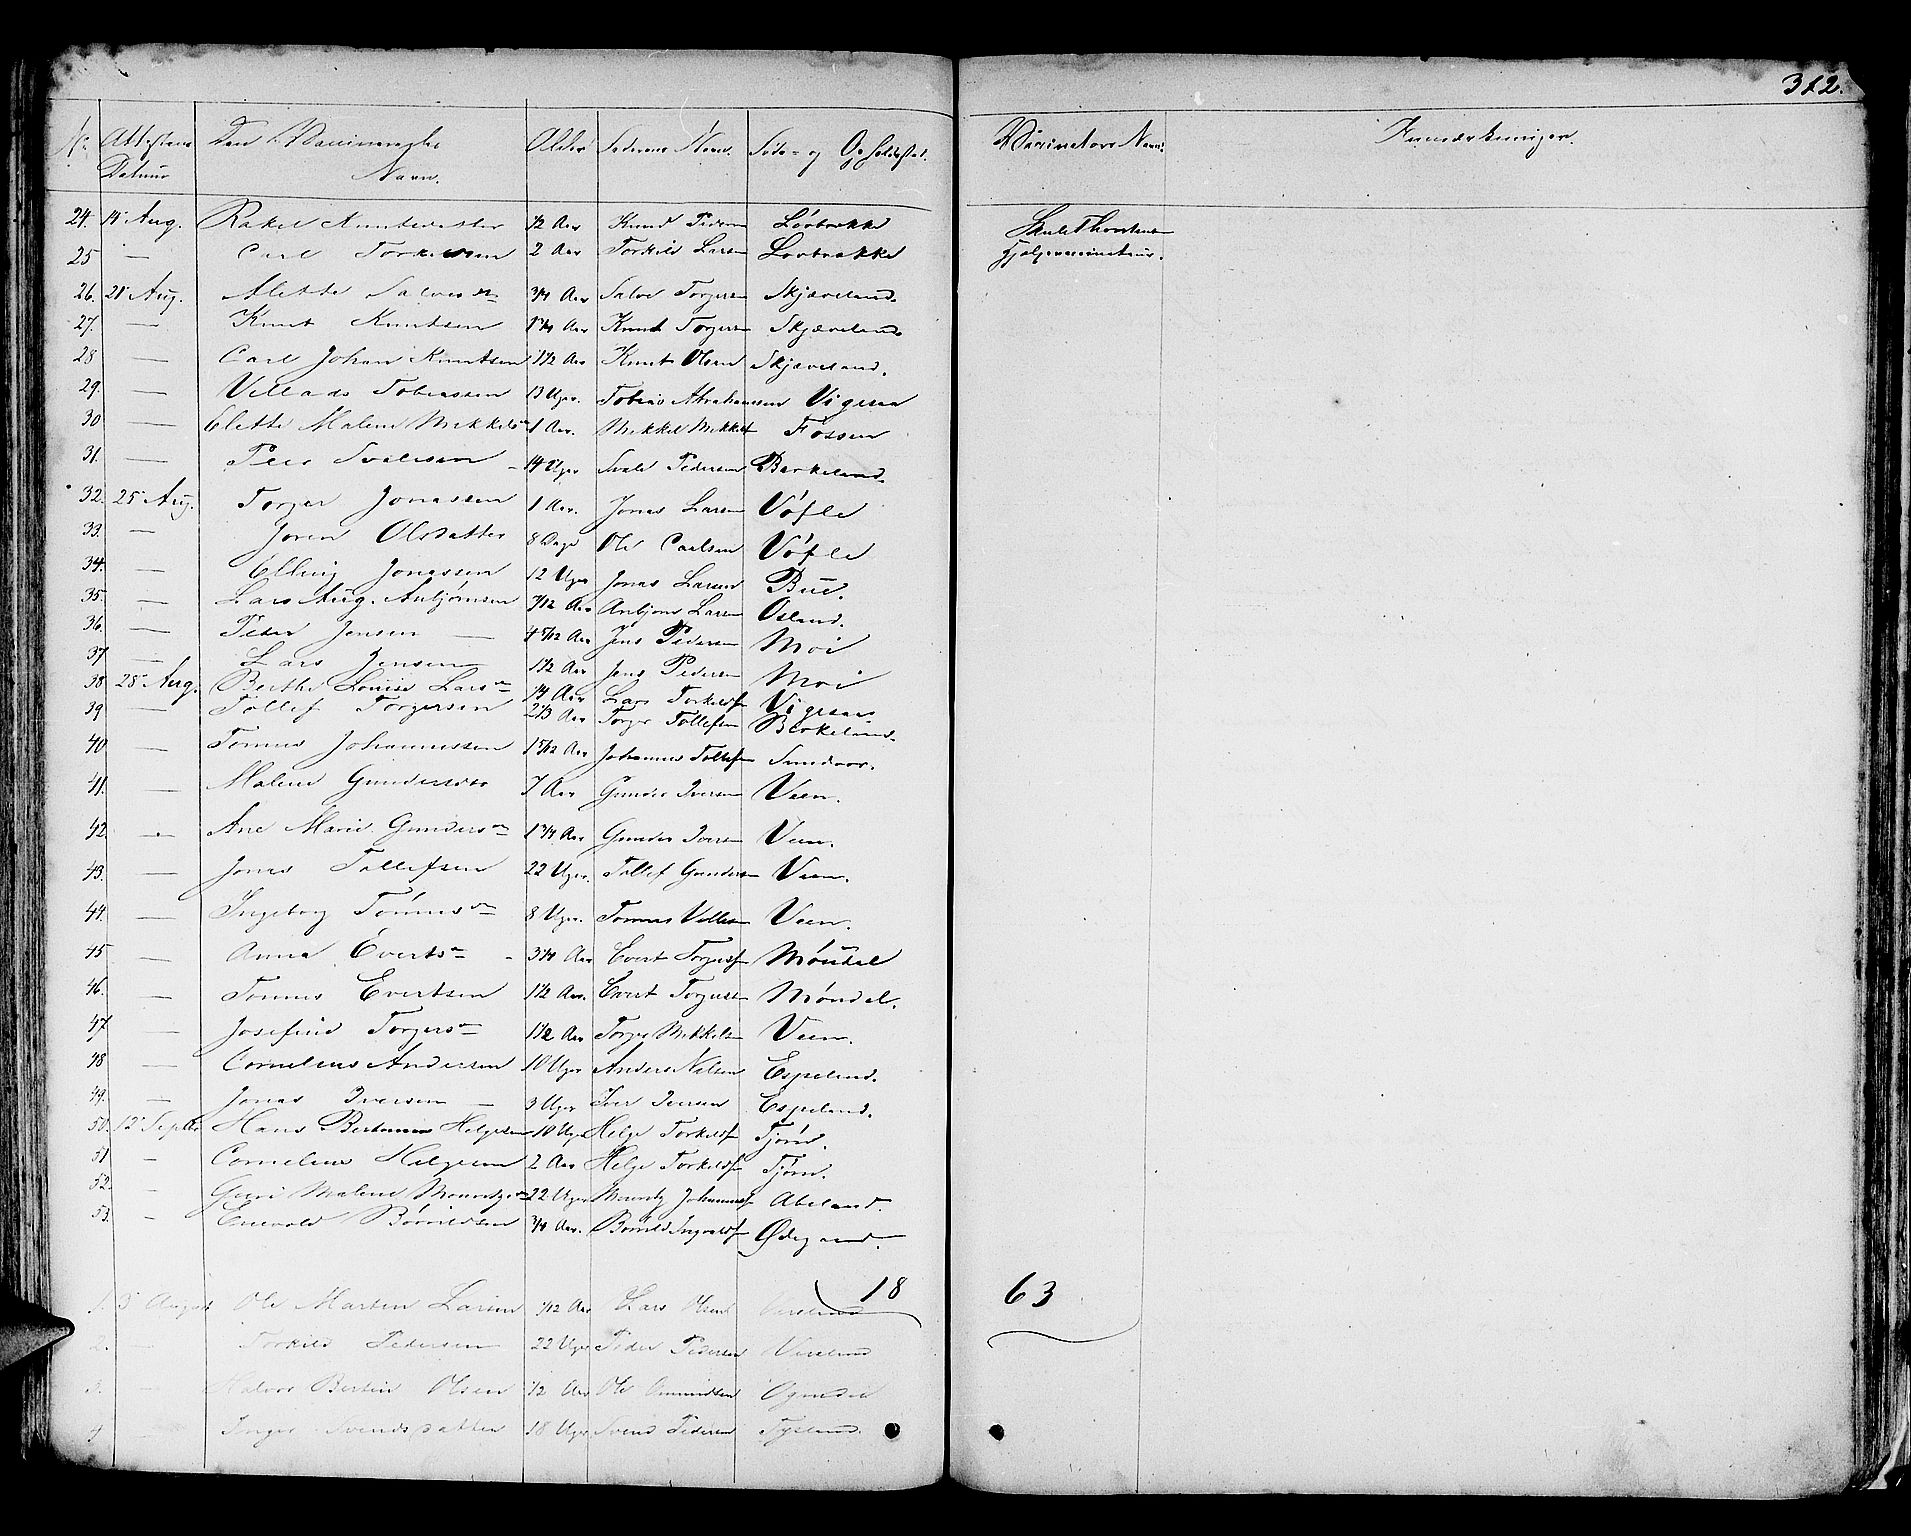 312.
No. Attestens Datum Den Vaccineredes Navn. Alder Faderens Navn. Føde- og Opholdssted. Vaccinators Navn. Anmærkninger.
24. 14 Aug. Rakel Knutsdatter 1/2 Aar Knud Peder Løvbrække Skule Thorsen
25 — Carl Torkelsen 2 Aar Torkild Larsen Lovbrække Hjælpevaccinateur.
26. 21 Aug. Alette Salves 3/4 Aar Salve Torgersen Skjæveland.
27. — Knut Knutsen 1 3/4 Aar Knut Torgersen Skjæveland
28 — Carl Johan Knutsen 1 1/2 Aar Knut Olsen Skjæveland.
29. — Villads Tobiassen 13 Uger. Tobias Abrahamsen Vigesaa
30 — Elette Malene Mikkels 1 Aar. Mikkel Mikkels Fossen
31. — Peer Svalesen 14 Uger Svale Pedersen Berkeland.
32. 25 Aug. Torger Jonassen 1 Aar. Jonas Larsen Vøfle
33. — Joren Olsdatter 8 Dage Ole Carlsen Vøfle
34. — Elling Jonassen 12 Uger Jonas Larsen Bue.
35. — Lars Aug. Anbjørnsen 3/12 Aar Anbjørn Larsen Osland.
36. — Peder Jensen — 4 5/12 Aar Jens Pedersen Moi
37 — Lars Jensen 1 1/2 Aar Jens Pedersen Moi
38 28 Aug. Berthe Louise Lars 1/4 Aar Lars Torkelsf Vigesaa
39 — Tollef Torgersen 2 1/3 Aar Torger Tollefsen Birkeland.
40. — Tønnes Johannessen 1 5/12 Aar Johannes Tollefs Sundvor.
41. Malene Gundersdtr 7 Aar Gunder Iversen Veen.
42. Ane Marie Gunders 1 3/4 Aar Gunder Iversen Veen.
43. — Jonas Tollefsen 22 Uger. Tollef Gundersen Veen.
44. — Ingeborg Tønnes 8 Uger. Tønnes Villesen Veen.
45 — Anna Everts 3 1/4 Aar Evert Torgersf Møndel
46. — Tønnes Evertsen 1 1/2 Aar. Evert Torgersen Møndel.
47 — Josefine Torgers 1 1/2 Aar Torger Mikkelsen Veen.
48 — Cornelius Andersen 10 Uger Anders Nilsen Espeland.
49. — Jonas Iversen — 3 Uger Iver Iversen Espeland.
50. 12 Septbr Hans Bertinius Helgesen 10 Uger Helge Torkelsf Tjørn.
51 — Cornelius Helgesen 2 Aar Helge Torkelsf Tjørn.
52. — Guri Malene Mauritz 22 Uger Mauritz Johannes Abeland.
53. — Enevold Børrildsen 3/4 Aar. Børrild Ingvaldsf Ødegaard.
18 63
1. 5 August Ole Martin Larsen 7/12 Aar Lars Olsen Vereland
2. — Torkild Pedersen 22 Uger Peder Pedersen Vereland
3. — Halvor Bertin Olsen 1/2 Aar Ole Omundsen Ognedal
4 — Inger Svendsdatter 18 Uger Svend Pedersen Tysland.